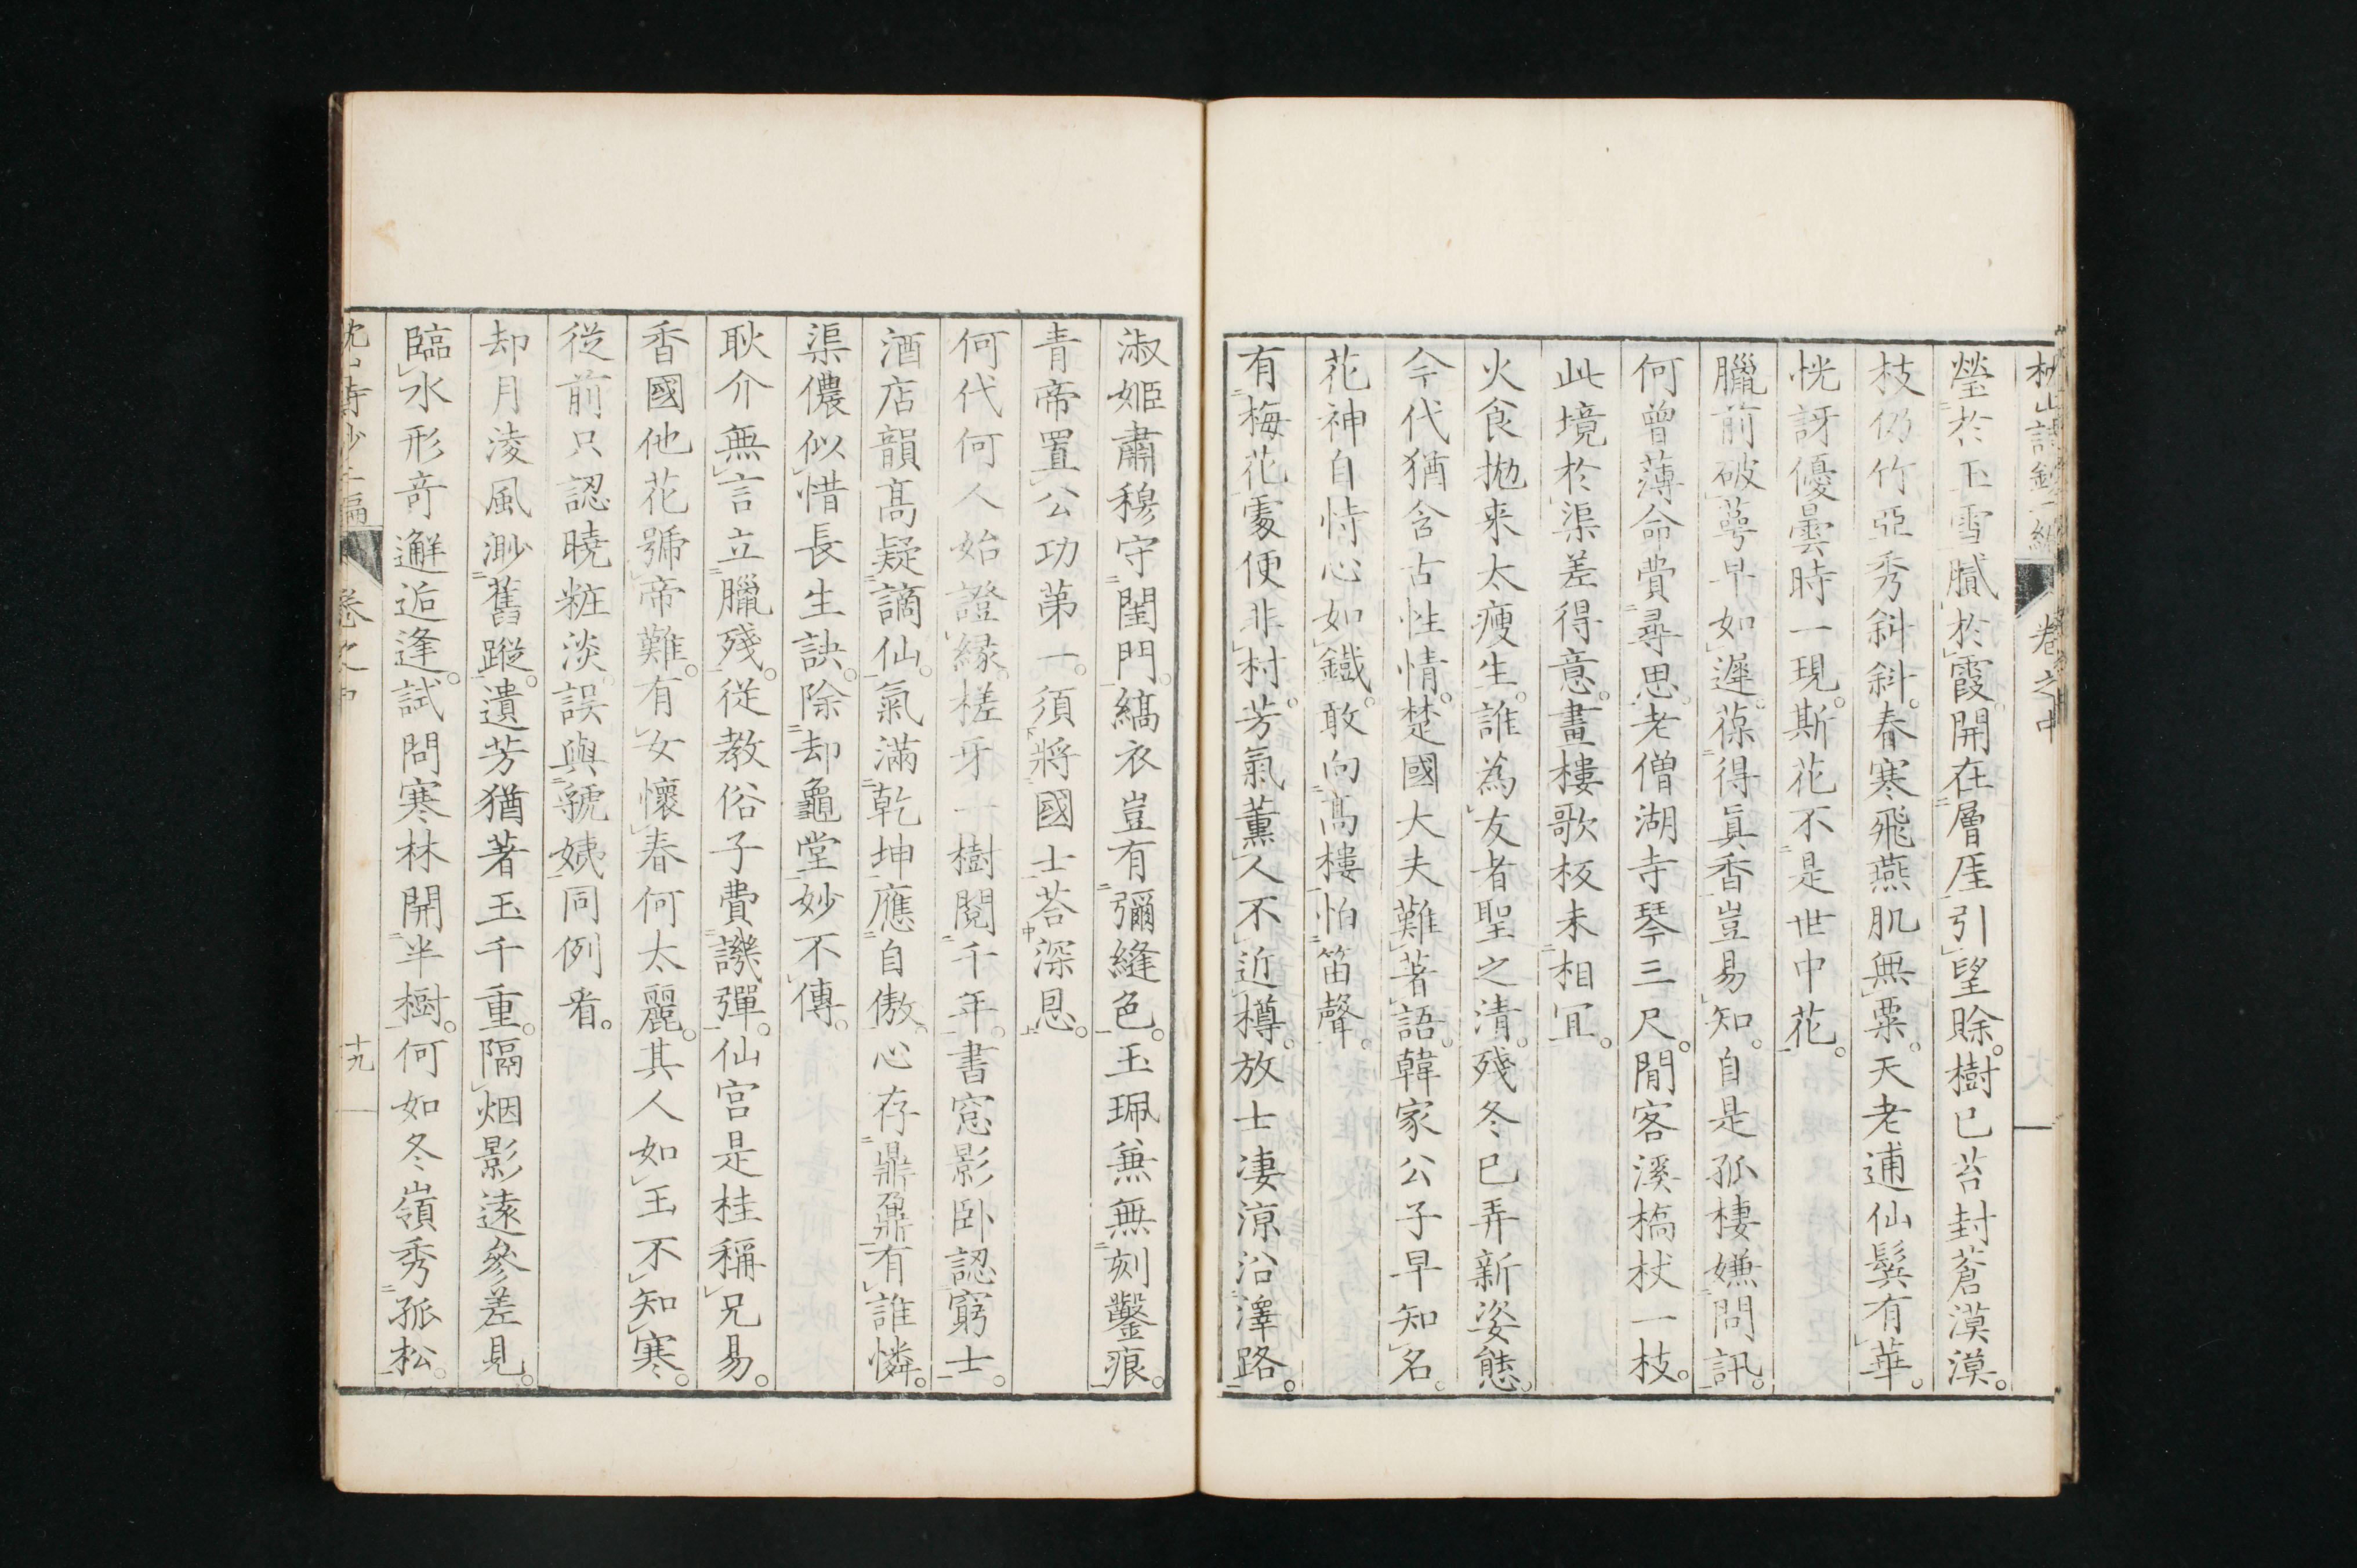 枕山詩鈔二編 卷之中
瑩於玉雪膩於霞。開在層厓引望賖。樹已苔封蒼漠漠。
枝仍竹亞秀斜斜。春寒飛燕肌無粟。天老逋仙鬢有華。
恍訝優曇時一現。斯花不是世中花。
臘前破蕚早如遲。葆得眞香豈易知。自是孤棲嫌問訊。
何曾薄命費尋思。老僧湖寺琴三尺。閒客溪橋杖一枝。
此境於渠差得意。畫樓歌板未相冝。
火食抛来太瘦生。誰為友者聖之清。殘冬已弄新姿態。
今代猶含古性情。楚國大夫難著語。韓家公子早知名。
花神自恃心如鐵。敢向髙樓怕笛聲。
有梅花處便非村。芳氣薰人不近樽。放士凄凉沿澤路。
淑姬肅穆守閨門。縞衣豈有彌縫色。玉珮兼無刻鑿痕。
青帝置公功第一。須將國士荅深恩。
何代何人始證緣。槎牙一樹閲千年。書窓影卧認窮士。
酒店韻髙疑謫仙。氣滿乾坤應自傲。心存鼎鼐有誰憐。
渠儂似惜長生訣。除却龜堂妙不傳。
耿介無言立臘殘。從教俗子費譏彈。仙宮是桂稱兄易。
香國他花號帝難。有女懷春何太麗。其人如玉不知寒。
從前只認曉粧淡。誤與虢姨同例看。
却月淩風渺舊蹤。遺芳猶著玉千重。隔烟影遠參差見。
臨水形竒邂逅逢。試問寒林開半樹。何如冬嶺秀孤松。
卷之中 十九